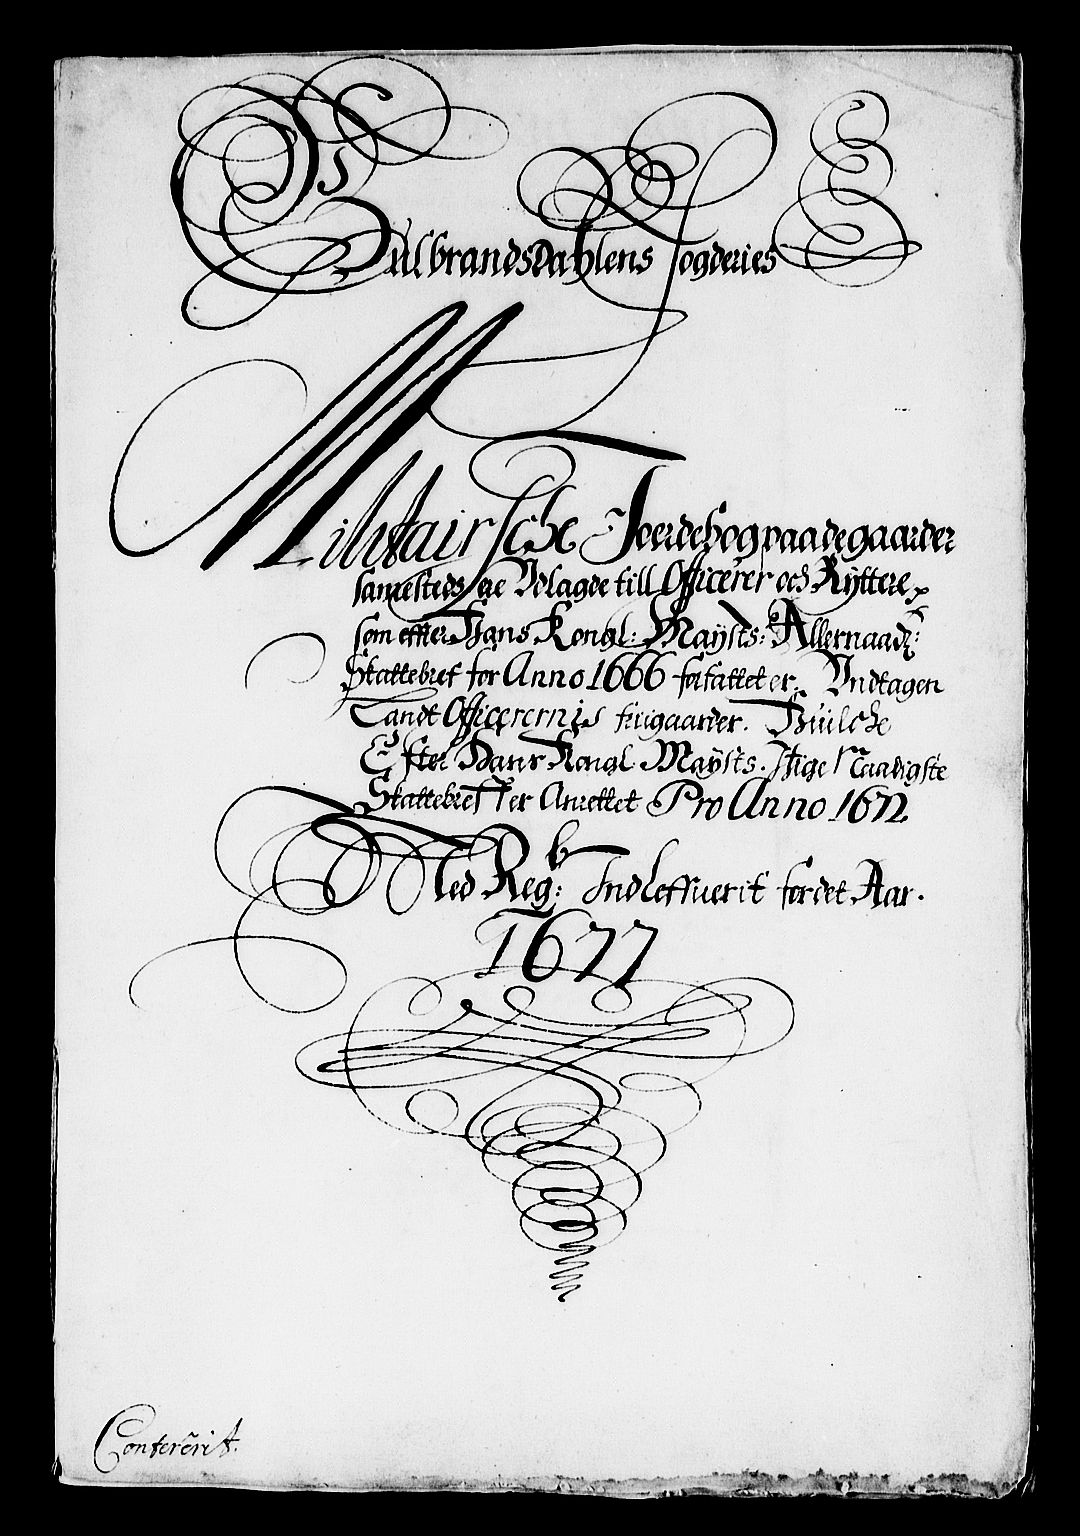 Gulbrandsdahlens fogderies
Militairsche Joerdebog paa de gaarder
samesteds, ere Udlagde till Officerer och Rÿttere
som effter Hans Kongl: Maÿsts: Allernaad:
Skattebref for Anno 1666 forfattet er, Undtagen
Landt Officerernis frigaarder. Huilche
Efter Hans Kongl Maÿsts. Naadigste
Skattebref er Anrettet Pro Anno 1672
Med Regb: Indleffuerit for det Aar.
1677
Confererit.